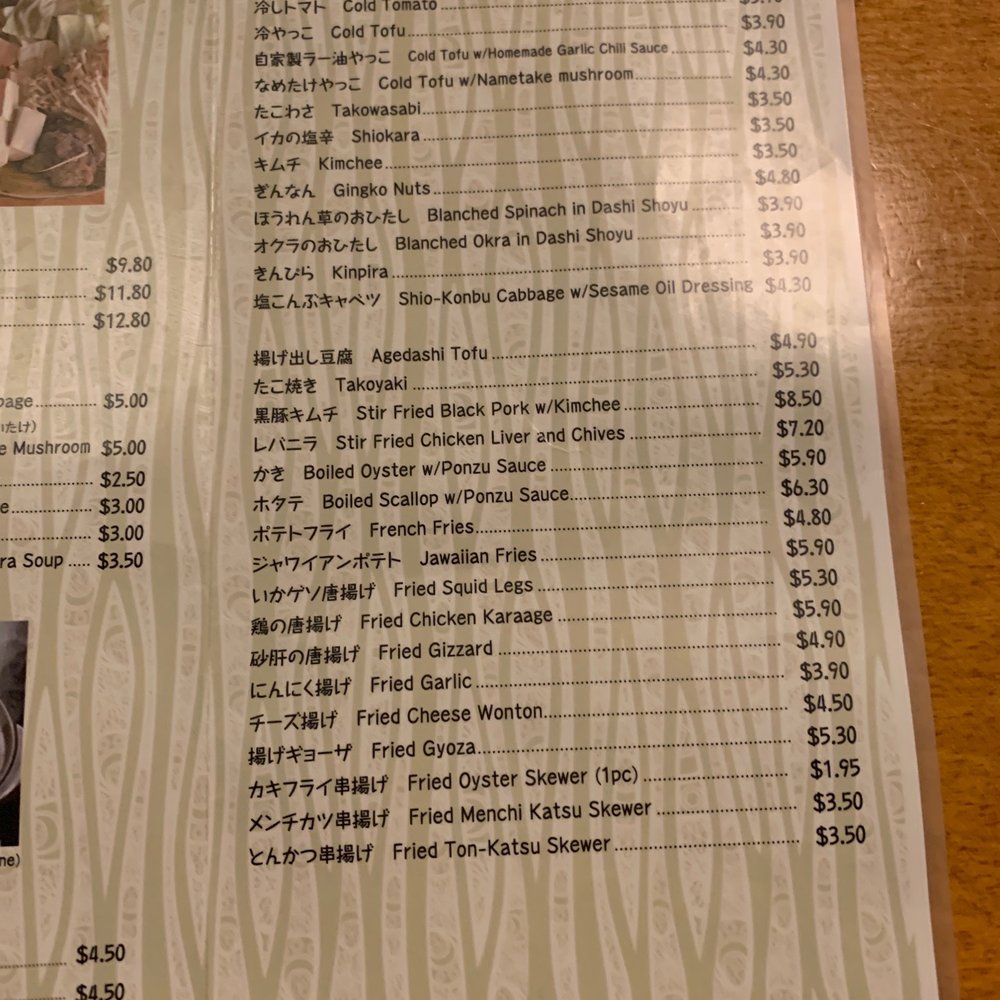 $9.80
$11.80
$12.80
bage $5.00
いたけ)
e Mushroom $5.00
$2.50
e $3.00
$3.00
ra Soup $3.50
ne)
$4.50
$4.50
冷しトマト Cold Tomato $3.90
冷やっこ Cold Tofu $3.90
自家製ラー油やっこ Cold Tofu w/Homemade Garlic Chili Sauce $4.30
なめたけやっこ Cold Tofu w/Nametake mushroom $4.30
たこわさ Takowasabi $3.50
イカの塩辛 Shiokara $3.50
キムチ Kimchee $3.50
ぎんなん Gingko Nuts $4.80
ほうれん草のおひたし Blanched Spinach in Dashi Shoyu $3.90
オクラのおひたし Blanched Okra in Dashi Shoyu $3.90
きんぴら Kinpira $3.90
塩こんぶキャベツ Shio-Konbu Cabbage w/Sesame Oil Dressing $4.30
揚げ出し豆腐 Agedashi Tofu $4.90
たこ焼き Takoyaki $5.30
黒豚キムチ Stir Fried Black Pork w/Kimchee $8.50
レバニラ Stir Fried Chicken Liver and Chives $7.20
かき Boiled Oyster w/Ponzu Sauce $5.90
ホタテ Boiled Scallop w/Ponzu Sauce $6.30
ポテトフライ French Fries $4.80
ジャワイアンポテト Jawaiian Fries $5.90
いかゲソ唐揚げ Fried Squid Legs $5.30
鶏の唐揚げ Fried Chicken Karaage $5.90
砂肝の唐揚げ Fried Gizzard $4.90
にんにく揚げ Fried Garlic $3.90
チーズ揚げ Fried Cheese Wonton $4.50
揚げギョーザ Fried Gyoza $5.30
カキフライ串揚げ Fried Oyster Skewer (1pc) $1.95
メンチカツ串揚げ Fried Menchi Katsu Skewer $3.50
とんかつ串揚げ Fried Ton-Katsu Skewer $3.50